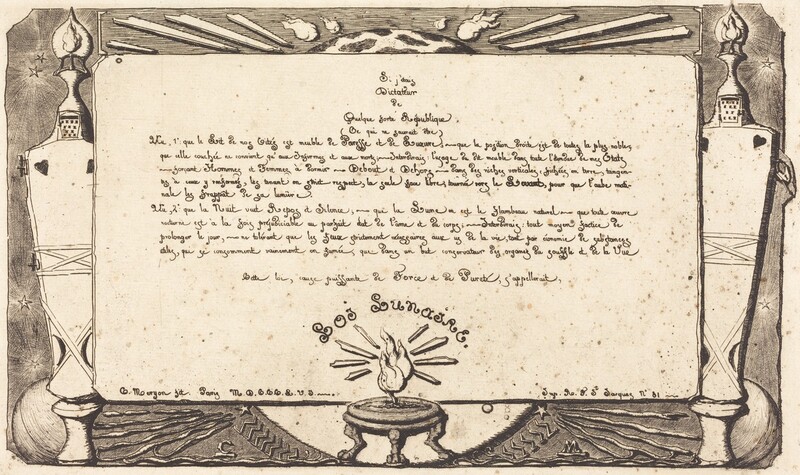 Si j'étais
Dictateur
de
Quelque forte République,
(Ce qui ne saurait être)
Vu, 1° que le Lit de nos Cités est meuble de Paresse et de Luxure, — que la position Droite est de toutes la plus noble,
que celle couchée ne convient qu'aux Infirmes et aux morts — Interdirais l'usage de dit meuble dans toute l'étendue de mes Etats
— forçant Hommes et Femmes à Dormir — Debout et Dehors — dans des niches verticales, fichées en terre,
à ceux y renfermés, les tenant en strict respect, la seule face libre, tournée vers le Levant, pour que l'aube
nale les frappât de sa lumière.
Vu, 2° que la Nuit veut Repos et Silence, — qui la Lune en est le flambeau naturel — que toute œuvre
nocturne est à la fois préjudiciable au parfait état de l'âme et du corps; — Interdirais tout moyen factice de
prolonger le jour, — ne tolérant que les Feux strictement nécessaires aux us de la vie, tant par économie de substances
utiles, qui se consomment vainement en fumée, que dans un but conservateur des organes du souffle et de la Vue
Cette loi, cause puissante de Force et de Pureté, s'appellerait,
Loi Lunaire.
C. Meryon fit. Paris M.D.C.C.C.L.V.I.
Imp. R. F. St Jacques N° 81